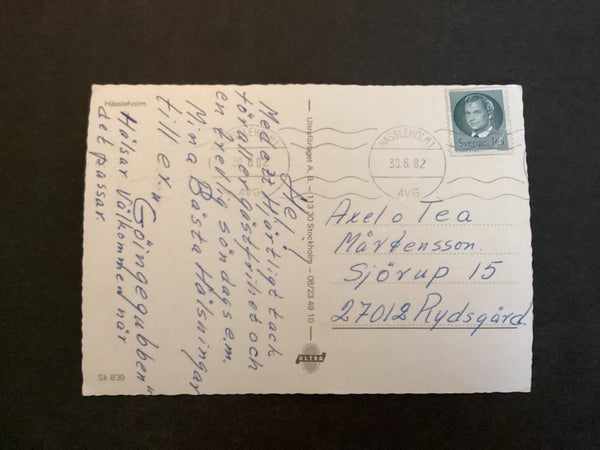 Hässleholm
Hej!
Med ett hjärtligt tack
för all er gästfrihet och
en trevlig söndags e.m.
Mina Bästa Hälsningar
till er.
"Göingegubben"
Hälsar Välkommen när
det passar
Sk 839
Ultraförlaget A. B. – 113 30 Stockholm – 08/23 49 10
ULTRA
HÄSSLEHOLM 1
30.6.82
AVG
HÄSSLEHOLM 1
30.6.82
AVG
Sverige 165
Axel o Tea
Mårtensson.
Sjörup 15
27012 Rydsgård